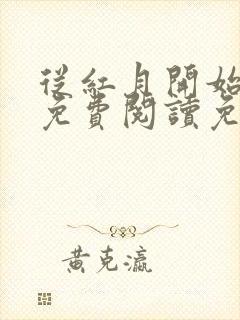 從紅月開始
免費閱讀免
黃克瀛